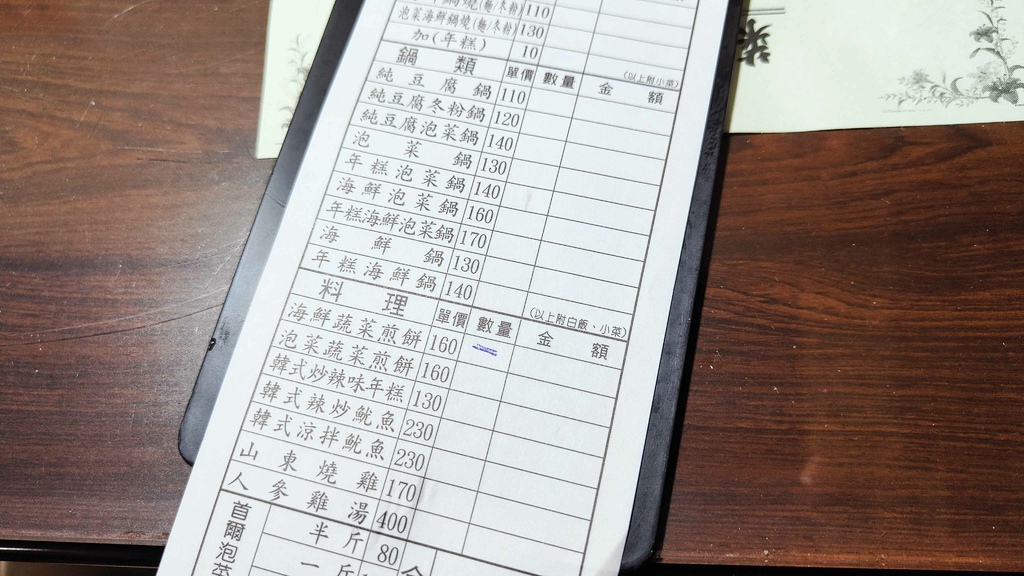 鍋燒(麵/冬粉) 110
泡菜海鮮鍋燒(麵/冬粉) 130
加(年糕) 10
(以上附小菜)
鍋類 單價 數量 金額
純豆腐鍋 110
純豆腐冬粉鍋 120
純豆腐泡菜鍋 140
泡菜鍋 130
年糕泡菜鍋 140
海鮮泡菜鍋 160
年糕海鮮泡菜鍋 170
海鮮鍋 130
年糕海鮮鍋 140
(以上附白飯、小菜)
料理 單價 數量 金額
海鮮蔬菜煎餅 160
泡菜蔬菜煎餅 160
韓式炒辣味年糕 130
韓式辣炒魷魚 230
韓式涼拌魷魚 230
山東燒雞 170
人參雞湯 400
首爾泡菜
半斤 80
一斤